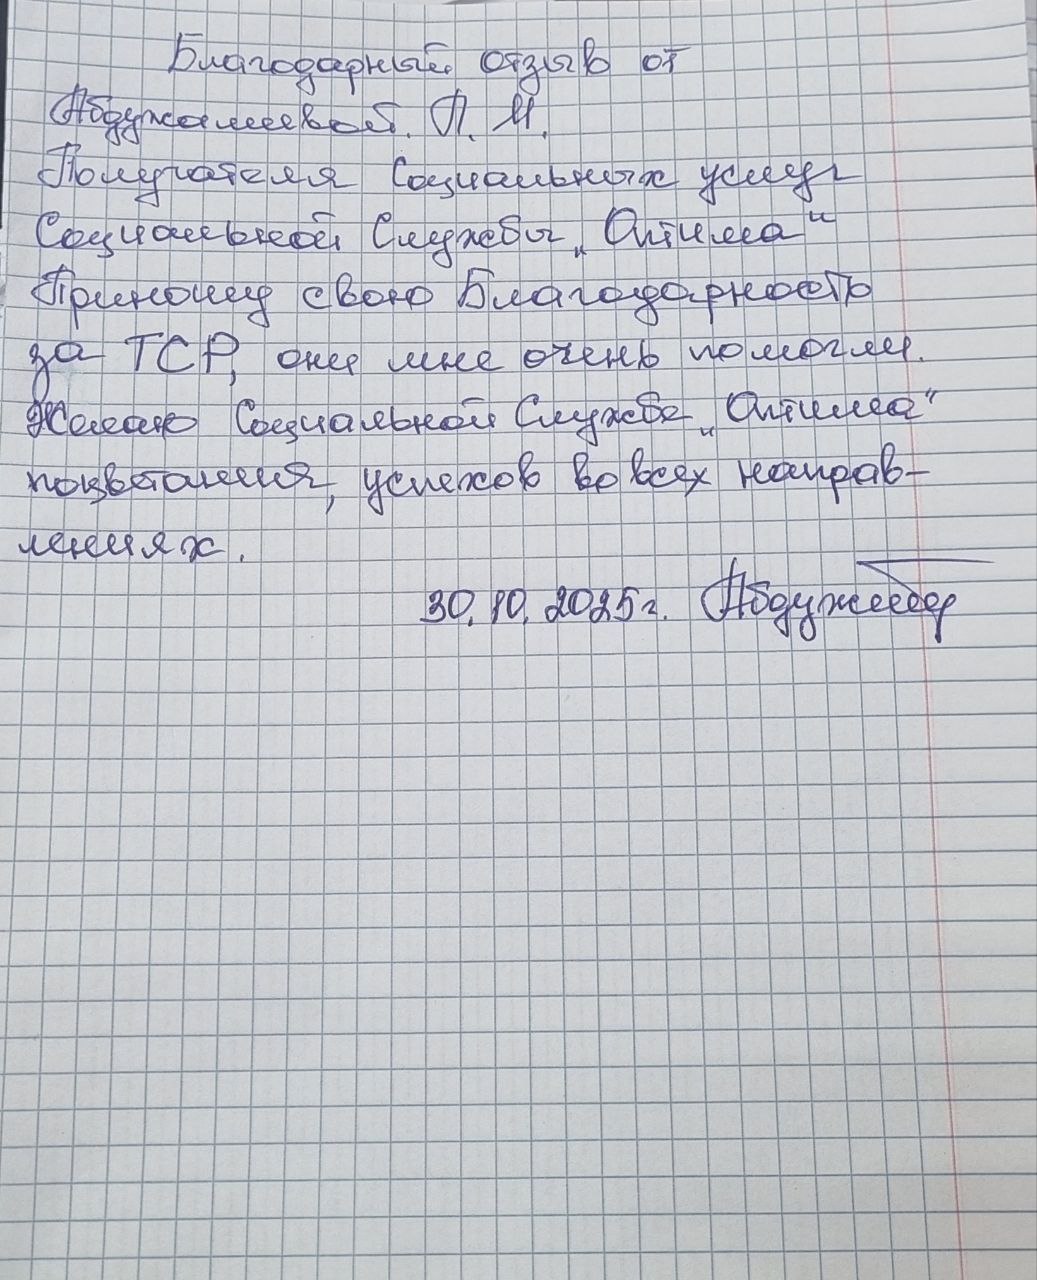 Благодарный отзыв от
Абдужамиевой. Л. И.
Получателя Социальных услуг
Социальной Службы „Оптима“
Приношу свою Благодарность
за ТСР, они мне очень помогли.
Желаю Социальной Службе „Оптима“
поцветания, успехов во всех направ-
лениях.
30.10.2025г.